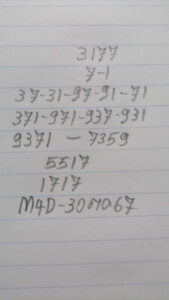 3177
7-1
37-31-97-91-71
371-971-937-931
9371 - 7359
5517
1717
M4D-30માઉ67